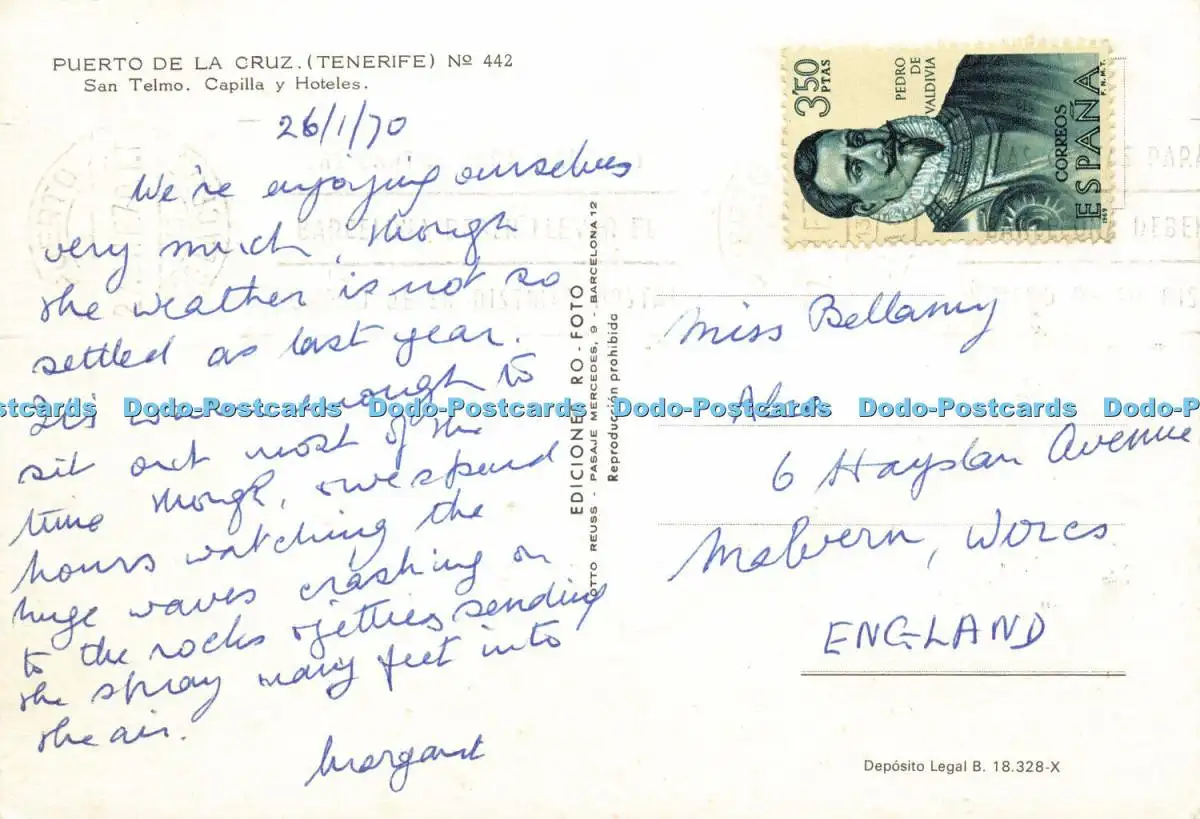 PUERTO DE LA CRUZ. (TENERIFE) Nº 442
San Telmo. Capilla y Hoteles.
26/1/70
We're enjoying ourselves
very much, though
the weather is not so
settled as last year.
It's warm enough to
sit out most of the
time though, & we spend
hours watching the
huge waves crashing on
to the rocks & jetties sending
the spray many feet into
the air.
Margaret
EDICIONES RO-FOTO
OTTO REUSS - PASAJE MERCEDES, 9 - BARCELONA 12
Reproducción prohibida
3'50 PTAS
PEDRO DE VALDIVIA
CORREOS
ESPAÑA
F.N.M.T.
1969
Miss Bellamy
6 Hayslan Avenue
Malvern, Worcs
ENGLAND
Depósito Legal B. 18.328-X
Dodo-Postcards Dodo-Postcards Dodo-Postcards Dodo-Postcards